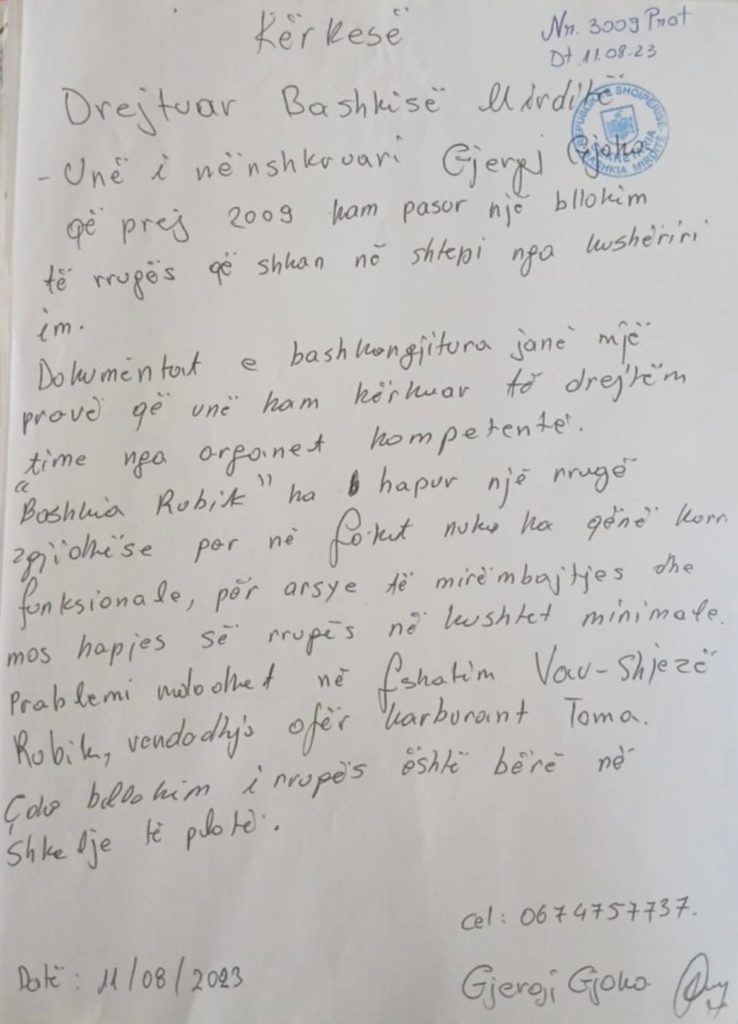 Kërkesë
Nr. 3009 Prot
Dt 11.08.23
Drejtuar Bashkisë Mirditë
REPUBLIKA E SHQIPËRISË
BASHKIA MIRDITË
- Unë i nënshkruari Gjergj Gjoka,
që prej 2009 kam pasur një bllokim
të rrugës që shkan në shtepi nga kushëriri
im.
Dokumentat e bashkongjitura janë një
provë që unë kam kërkuar të drejtëm
time nga organet kompetente.
"Bashkia Rubik" ka hapur një rrugë
zgjidhëse por në fakt nuk ka qënë
funksionale, për arsye të mirëmbajtjes dhe
mos hapjes së rrugës në kushtet minimale.
Problemi ndodhet në fshatim Vau-Shjezë
Rubik, vendodhja afër karburant Toma.
Çdo bllokim i rrugës është bërë në
Shkelje të plotë.
cel: 0674757737.
Datë: 11/08/2023
Gjergj Gjoka